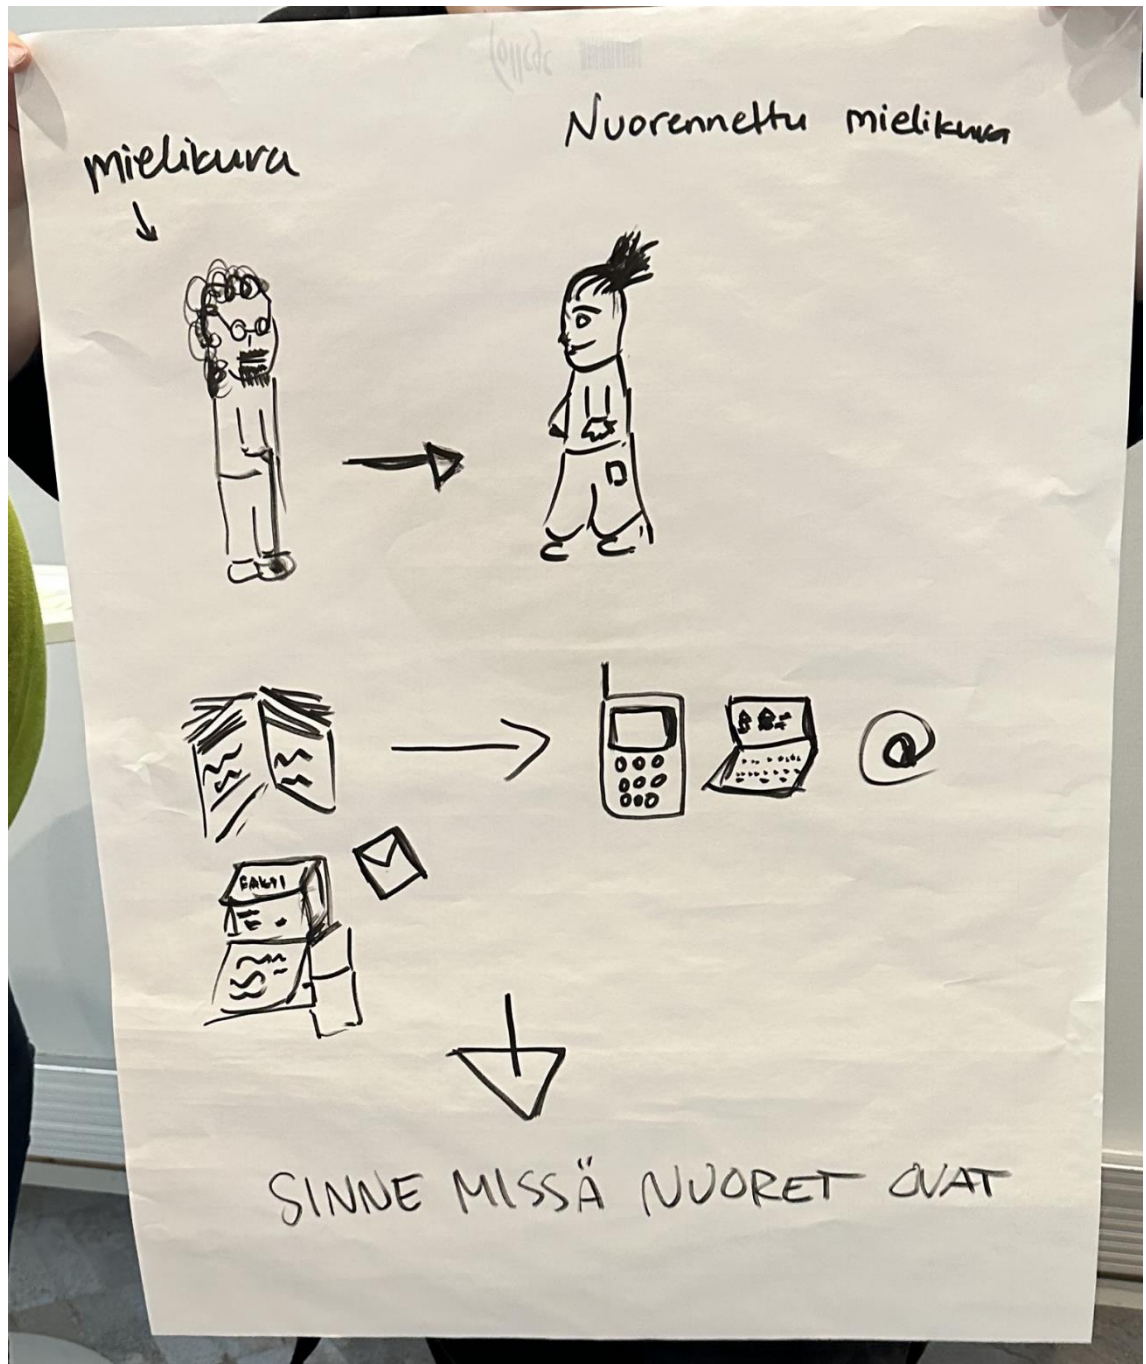 mielikuva
Nuorennettu mielikuva
SINNE MISSÄ NUORET OVAT